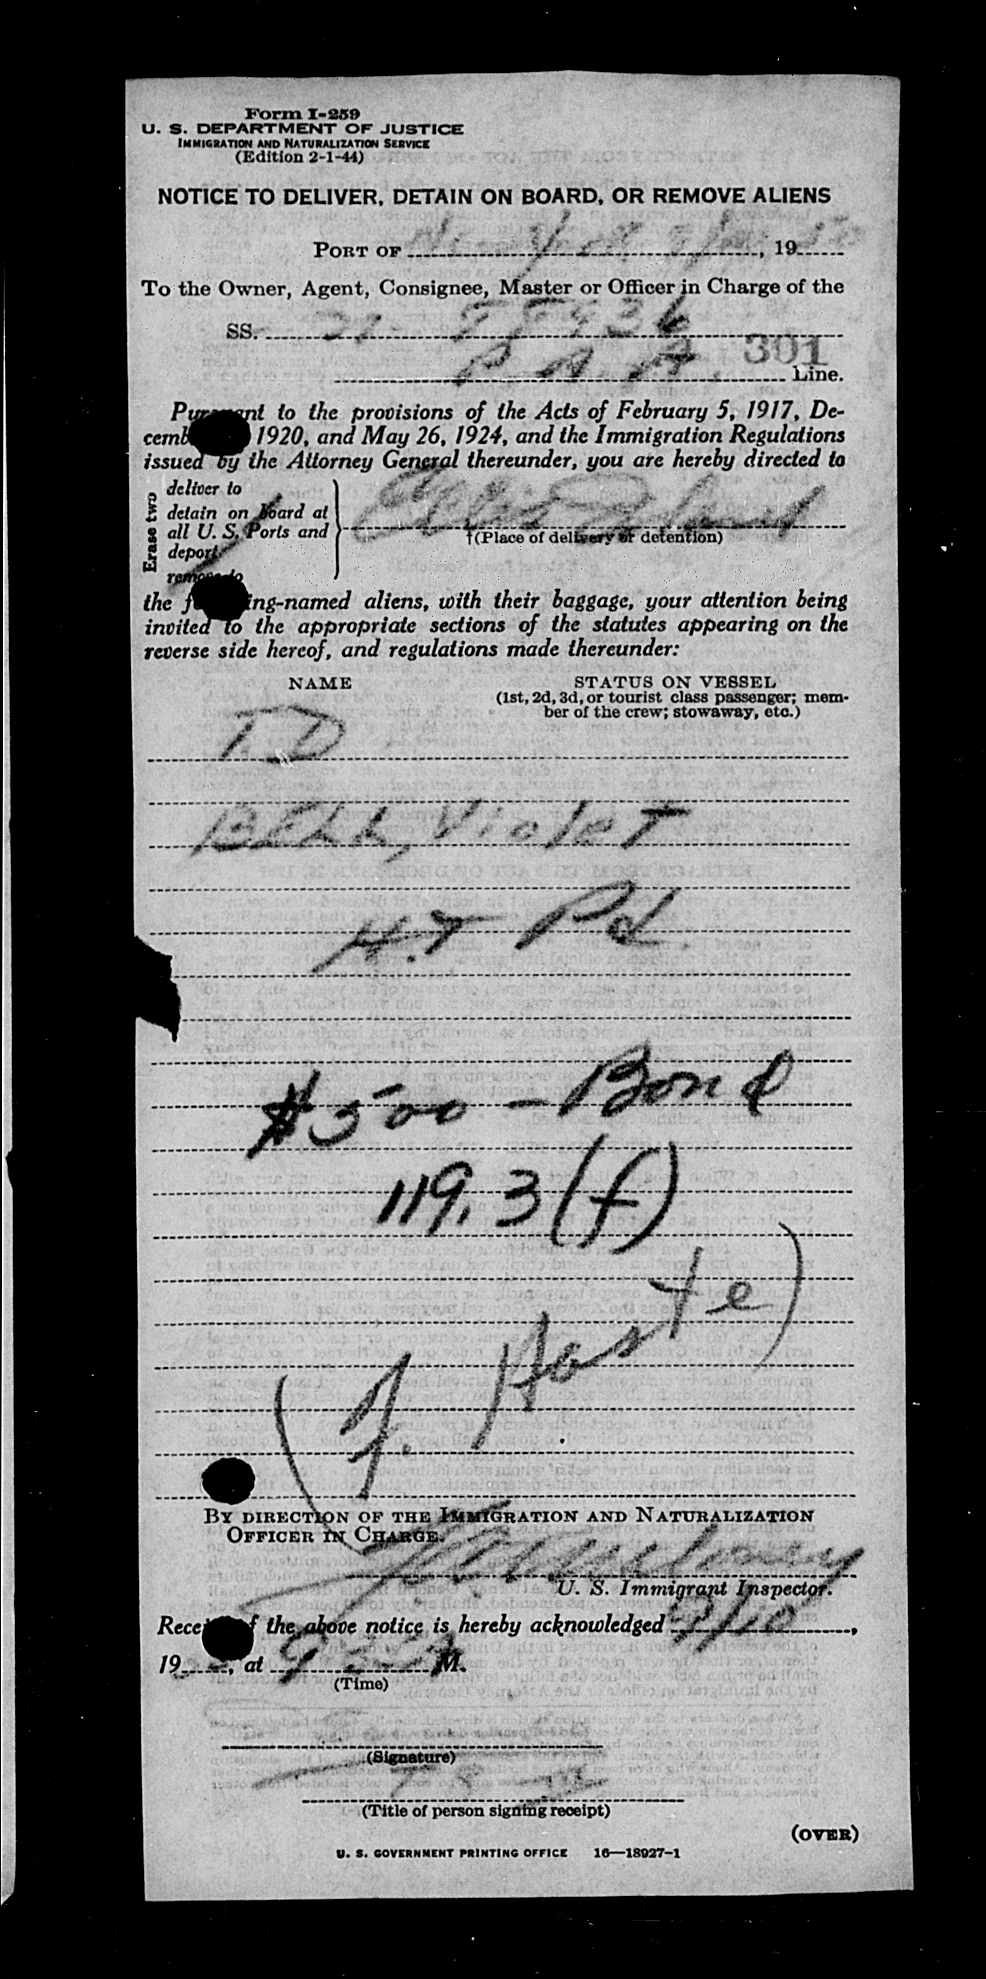 Form I-259
U. S. DEPARTMENT OF JUSTICE
IMMIGRATION AND NATURALIZATION SERVICE
(Edition 2-1-44)
NOTICE TO DELIVER, DETAIN ON BOARD, OR REMOVE ALIENS
PORT OF New York , 19 50
To the Owner, Agent, Consignee, Master or Officer in Charge of the
SS. 88936
301
P. A. A. Line.
Pursuant to the provisions of the Acts of February 5, 1917, De-
cemb 1920, and May 26, 1924, and the Immigration Regulations
issued by the Attorney General thereunder, you are hereby directed to
Erase two
deliver to
detain on board at
all U. S. Ports and
deport
remove to
Ellis Island
†(Place of delivery or detention)
the f ing-named aliens, with their baggage, your attention being
invited to the appropriate sections of the statutes appearing on the
reverse side hereof, and regulations made thereunder:
NAME STATUS ON VESSEL
(1st, 2d, 3d, or tourist class passenger; mem-
ber of the crew; stowaway, etc.)
T.D
BELL, Violet
H.T Pd
$500 - Bond
119.3(f)
(F. Haste)
BY DIRECTION OF THE IMMIGRATION AND NATURALIZATION
OFFICER IN CHARGE.
U. S. Immigrant Inspector.
Rece f the above notice is hereby acknowledged 9/10 ,
19 , at 9 M.
(Time)
(Signature)
(Title of person signing receipt)
(OVER)
U. S. GOVERNMENT PRINTING OFFICE 16—18927-1